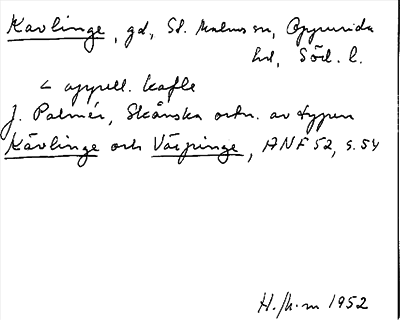 Kavlinge, gd, St. Malms sn, Oppunda
hd, Söd. l.
< appell. kafle
J. Palmér, Skånska ortn. av typen
Kävlinge och Värpinge, ANF 52, s. 54
H./h.m 1952